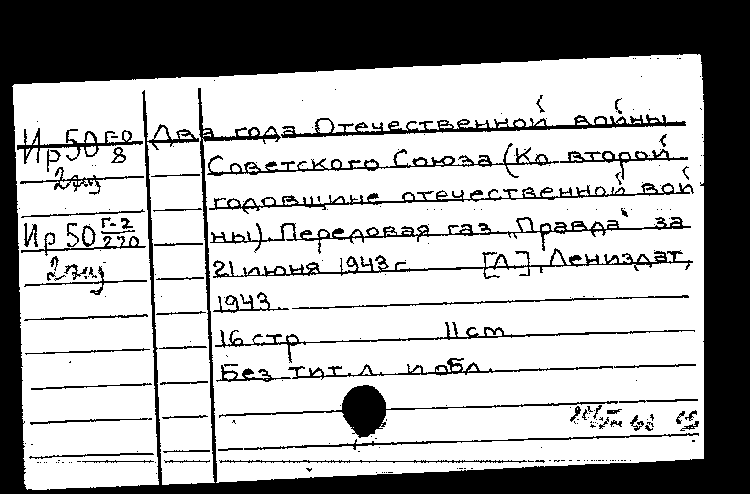 Ир 50 Г-0/8
2 экз
Ир 50 Г-2/270
2 экз
Два года Отечественной войны
Советского Союза (Ко второй
годовщине отечественной вой
ны). Передовая газ. „Правда“ за
21 июня 1943 г. [Л.], Лениздат,
1943.
16 стр. 11 cm
Без тит. л. и обл.